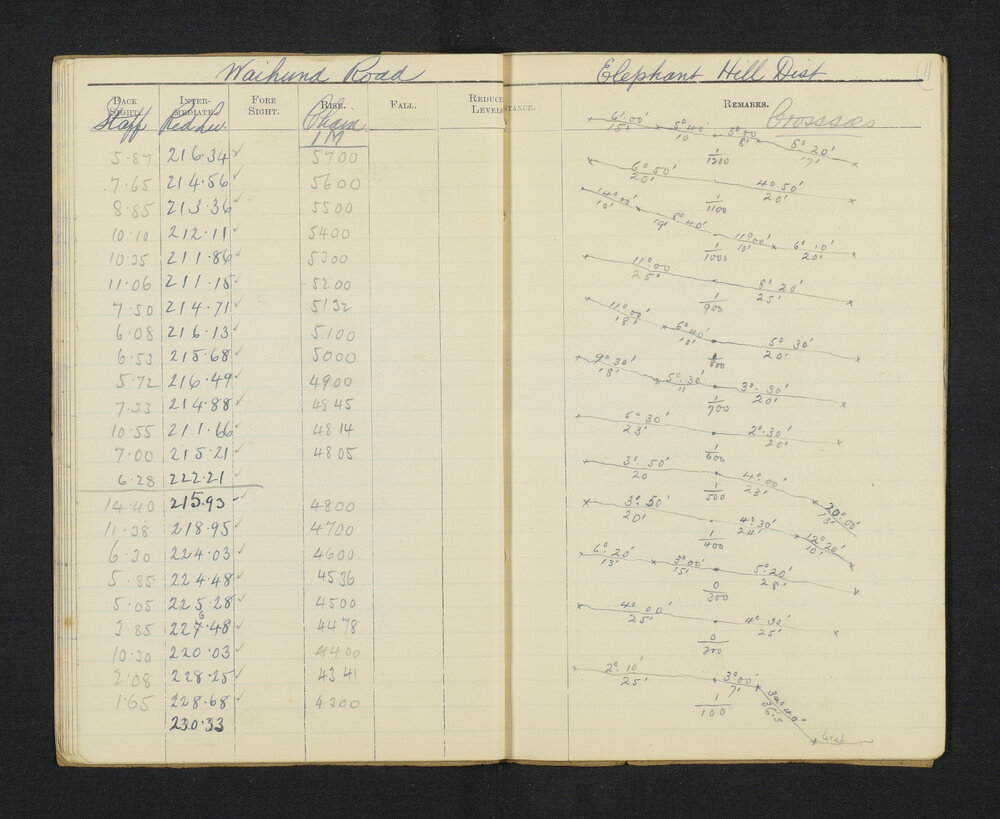 Waihund Road
Elephant Hill Dist
11
BACK SIGHT. INTER-MEDIATE. FORE SIGHT. RISE. FALL. REDUCE LEVELS
STANCE. REMARKS.
Staff Red Lev. Chain
Crosssos
1M
5.87 216.34 ✓ 5700
7.65 214.56 ✓ 5600
8.85 213.36 ✓ 5500
10.10 212.11 ✓ 5400
10.35 211.86 ✓ 5300
11.06 211.15 ✓ 5200
7.50 214.71 ✓ 5132
6.08 216.13 ✓ 5100
6.53 215.68 ✓ 5000
5.72 216.49 ✓ 4900
7.33 214.88 ✓ 4845
10.55 211.66 ✓ 4814
7.00 215.21 ✓ 4805
6.28 222.21 ✓
14.40 215.93 ✓ 4800
11.38 218.95 ✓ 4700
6.30 224.03 ✓ 4600
5.85 224.48 ✓ 4536
5.05 225.28 ✓ 4500
6
3.85 227.48 ✓ 4478
10.30 220.03 ✓ 4400
2.08 228.25 ✓ 4341
1.65 228.68 ✓ 4300
230.33
6°.00' 5°40' 3°00 8°20'
15' 10 8' 7'
1/1200
6°50' 4°50'
20' 20'
1/1100
14°00' 8°40' 11°00' 6°10'
10' 19' 10' 20'
1/1000
11°00 8°20'
25' 25'
1/900
11°00' 6°40' 5°30'
18' 10' 20'
1/800
9°30' 5°30' 3°.30'
18' 11 20'
1/700
6°30' 2°.30'
23' 20'
1/600
3°.50' 4°00' 20°00'
20 23' 3'
1/500
3°.50' 4°.30' 12°20'
20' 24' 10'
1/400
6°.20' 3°00' 5°.20'
13' 15' 28'
0/300
4°00' 4°30'
25' 25'
0/200
2°.10' 3°00'
25' 7' 36.5
1/100